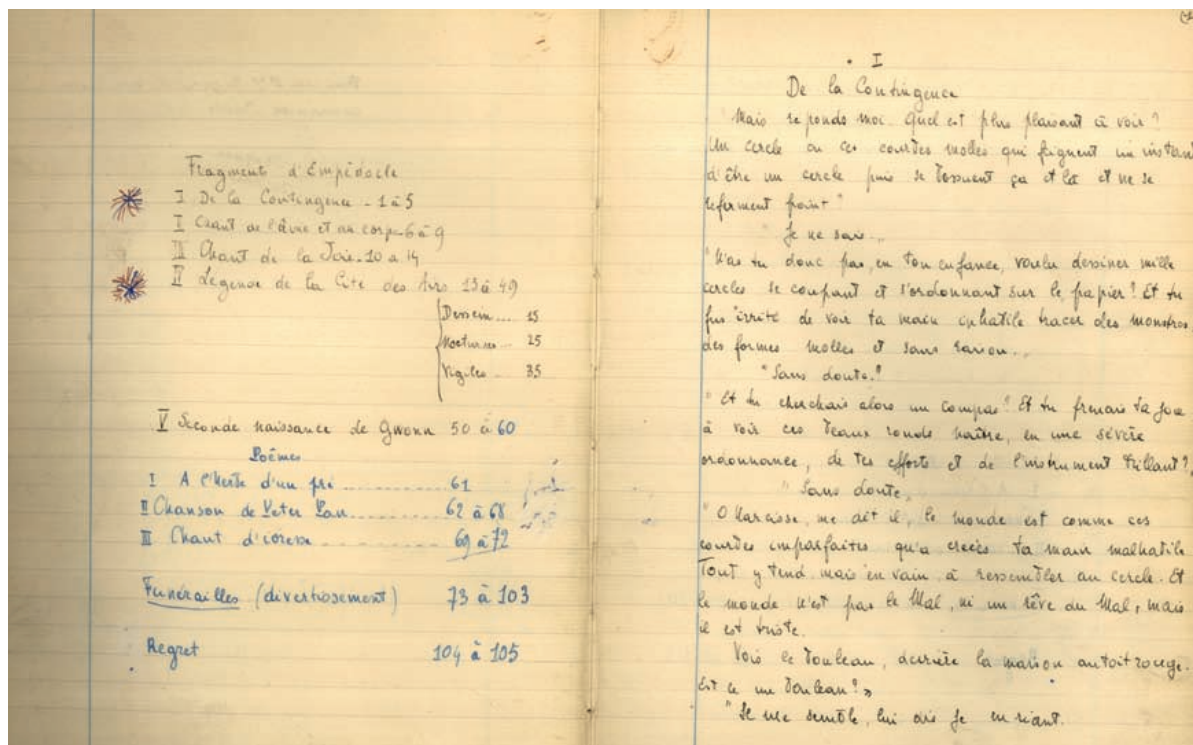 Fragments d'Empédocle
I De la Contingence - 1 à 5
I Chant de l'âme et du corps 6 à 9
III Chant de la Joie - 10 à 14
IV Legende de la Cité des Airs 15 à 49
Dessein ... 15
Nocturnes ... 25
Vigiles ... 35
V Seconde naissance de Gwonn 50 à 60
Poèmes
I A l'herbe d'un pré ............ 61
II Chanson de Peter Pan ............ 62 à 68
III Chant d'ivresse ............ 69 à 72
Funérailles (divertissement) 73 à 103
Regret 104 à 105
I
De la Contingence
Mais reponds moi. Quel est plus plaisant à voir ?
Un cercle ou ces courbes molles qui feignent un instant
d'être un cercle puis se ça et là et ne se
referment point ?
Je ne sais ..
"N'as tu donc pas, en ton enfance, voulu dessiner mille
cercles se coupant et s'ordonnant sur le papier ? Et tu
fus irrité de voir ta main inhabile tracer des monstres
des formes molles et sans raison ...
"Sans doute.
"Et tu cherchais alors un compas ? Et tu prenais ta joie
à voir ces beaux ronds naître, en une sévère
ordonnance, de tes efforts et de l'instrument brillant ?
"Sans doute.
"O Narcisse, me dit il, le monde est comme ces
courbes imparfaites qu'a creées ta main malhabile
Tout y tend, mais en vain, à ressembler au cercle. Et
le monde n'est pas le Mal, ni un rêve du Mal, mais
il est triste.
Vois ce bouleau, derrière la maison au toit rouge.
Est ce un bouleau ? »
"Il me semble, lui dis je en riant.